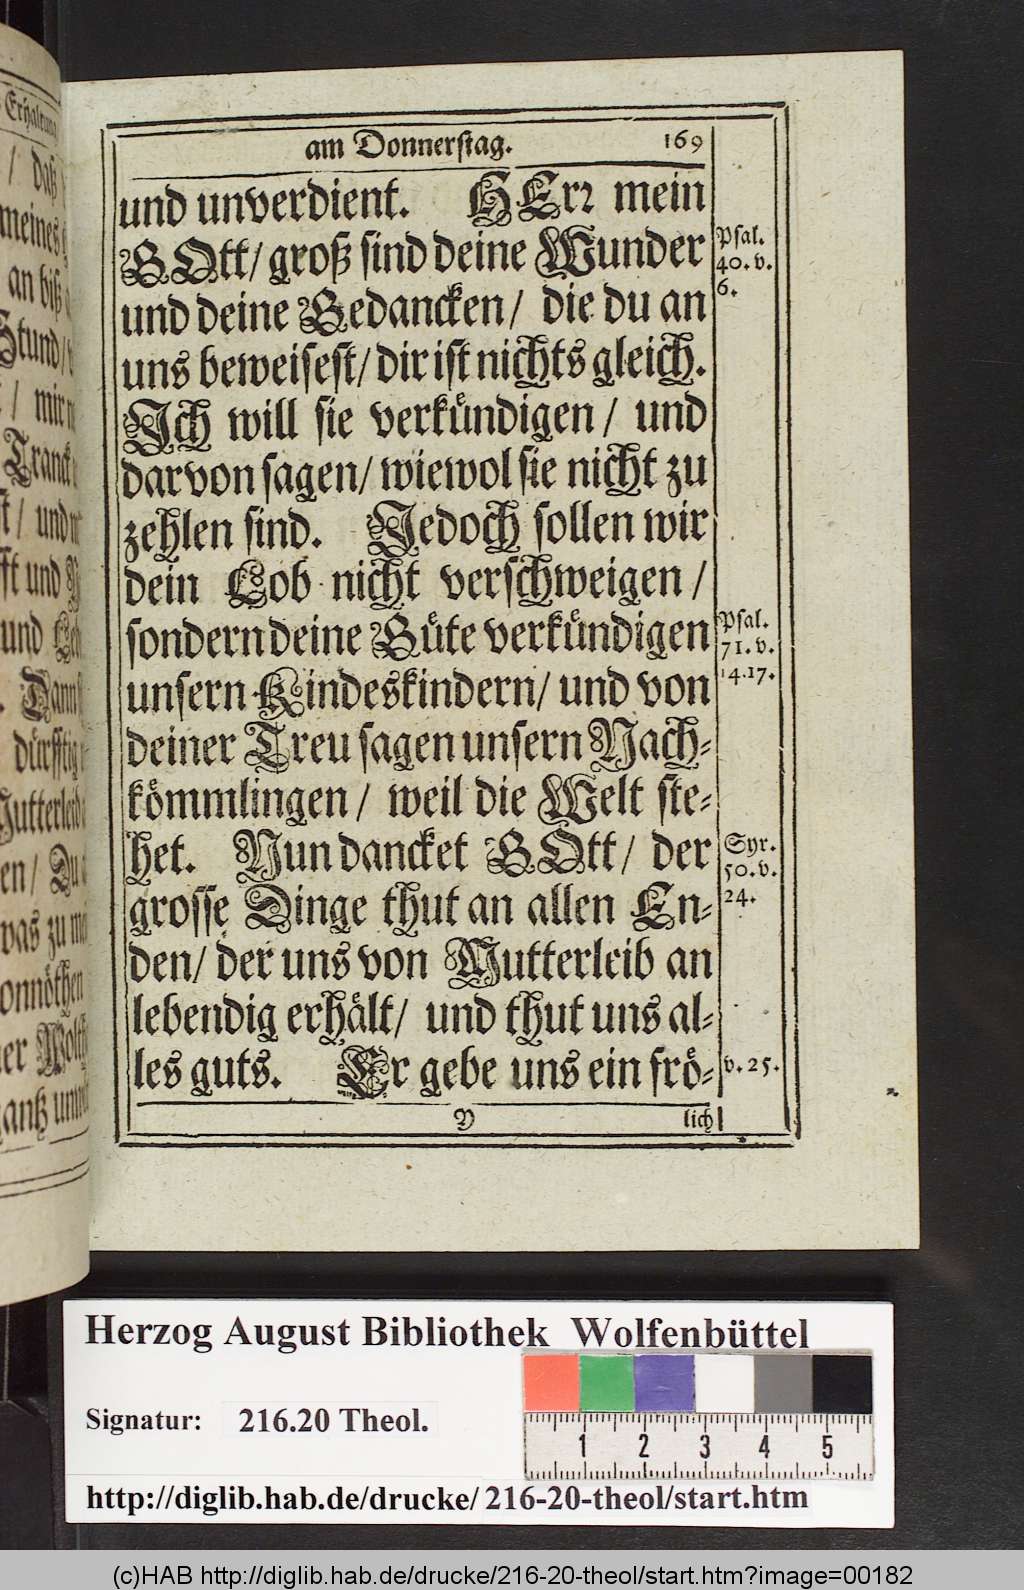 Erhaltung
/ daß
meines
an biß
Stund/
/ mir
Tranck
/ und
fft und
und
Dann
dürfftig
Mutterleib
en/ Du
was zu
vonnöthen
er
gantz
am Donnerstag. 169
und unverdient. HErr mein
GOtt/ groß sind deine Wunder
und deine Gedancken/ die du an
uns beweisest/ dir ist nichts gleich.
Ich will sie verkündigen/ und
darvon sagen/ wiewol sie nicht zu
zehlen sind. Jedoch sollen wir
dein Lob nicht verschweigen/
sondern deine Güte verkündigen
unsern Kindeskindern/ und von
deiner Treu sagen unsern Nach-
kömmlingen/ weil die Welt ste-
het. Nun dancket GOtt/ der
grosse Dinge thut an allen En-
den/ der uns von Mutterleib an
lebendig erhält/ und thut uns al-
les guts. Er gebe uns ein frö-
Y lich
Psal.
40. v.
6.
Psal.
71. v.
14.17.
Syr.
50. v.
24.
v. 25.
Herzog August Bibliothek Wolfenbüttel
Signatur: 216.20 Theol.
1 2 3 4 5
http://diglib.hab.de/drucke/216-20-theol/start.htm
(c)HAB http://diglib.hab.de/drucke/216-20-theol/start.htm?image=00182